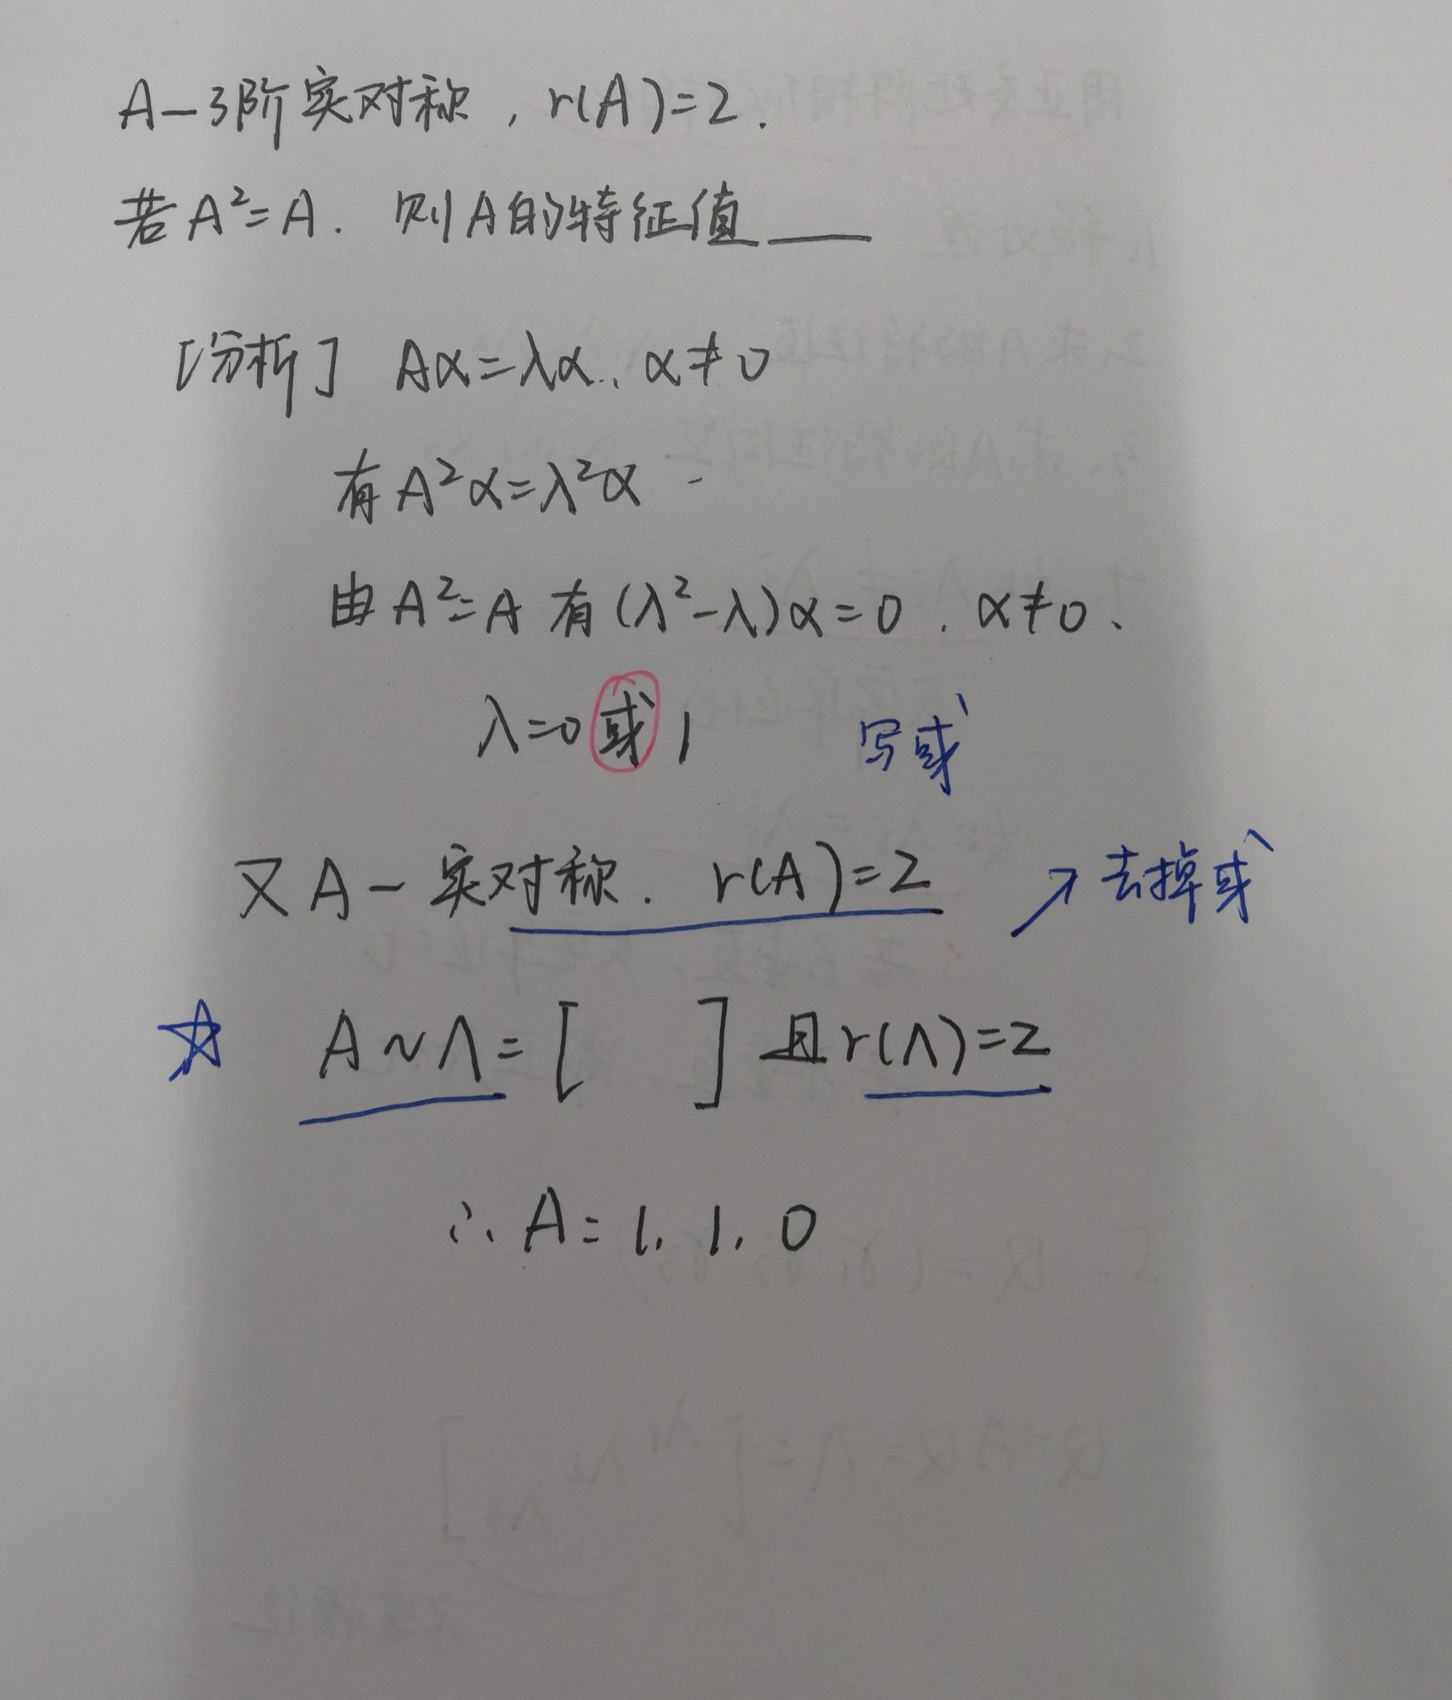 A-3阶实对称，r(A)=2.
若A²=A. 则A的特征值____
[分析] Aα=λα., α≠0
有A²α=λ²α
由A²=A 有(λ²-λ)α=0. α≠0、
λ=0或1 写或
又A-实对称. r(A)=2 ↗去掉或
☆ A~Λ=[ ] 且r(Λ)=2
∴A=1. 1. 0